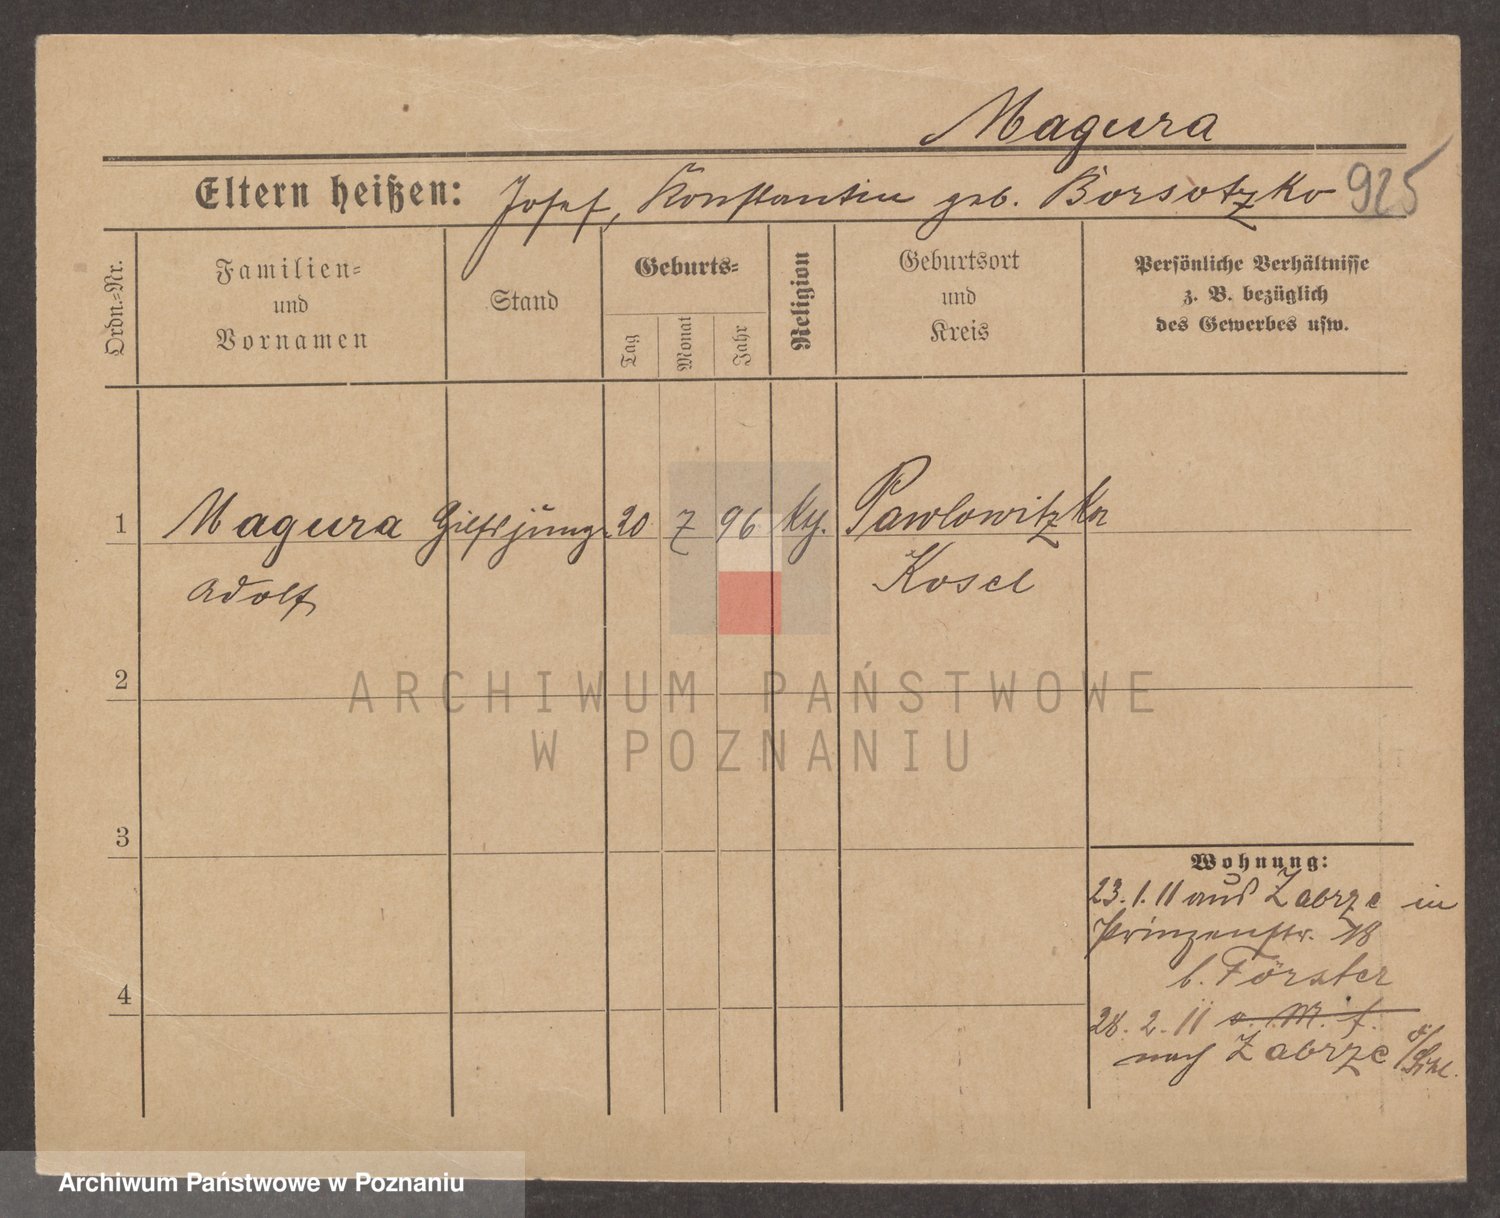 Magura
Eltern heißen: Josef, Konstantin geb. Borsotzko 925
Ordn.-Nr.
Familien-
und
Vornamen
Stand
Geburts-
Tag
Monat
Jahr
Religion
Geburtsort
und
Kreis
Persönliche Verhältnisse
z. B. bezüglich
des Gewerbes usw.
1 Magura 20 7 96 Pawlowitzke
Adolf Kosel
2
ARCHIWUM PAŃSTWOWE
W POZNANIU
3
Wohnung:
23. 1. 11 aus Zabrze in
Prinzenstr. 18
b. Förster
4
28. 2. 11
nach Zabrze
Archiwum Państwowe w Poznaniu